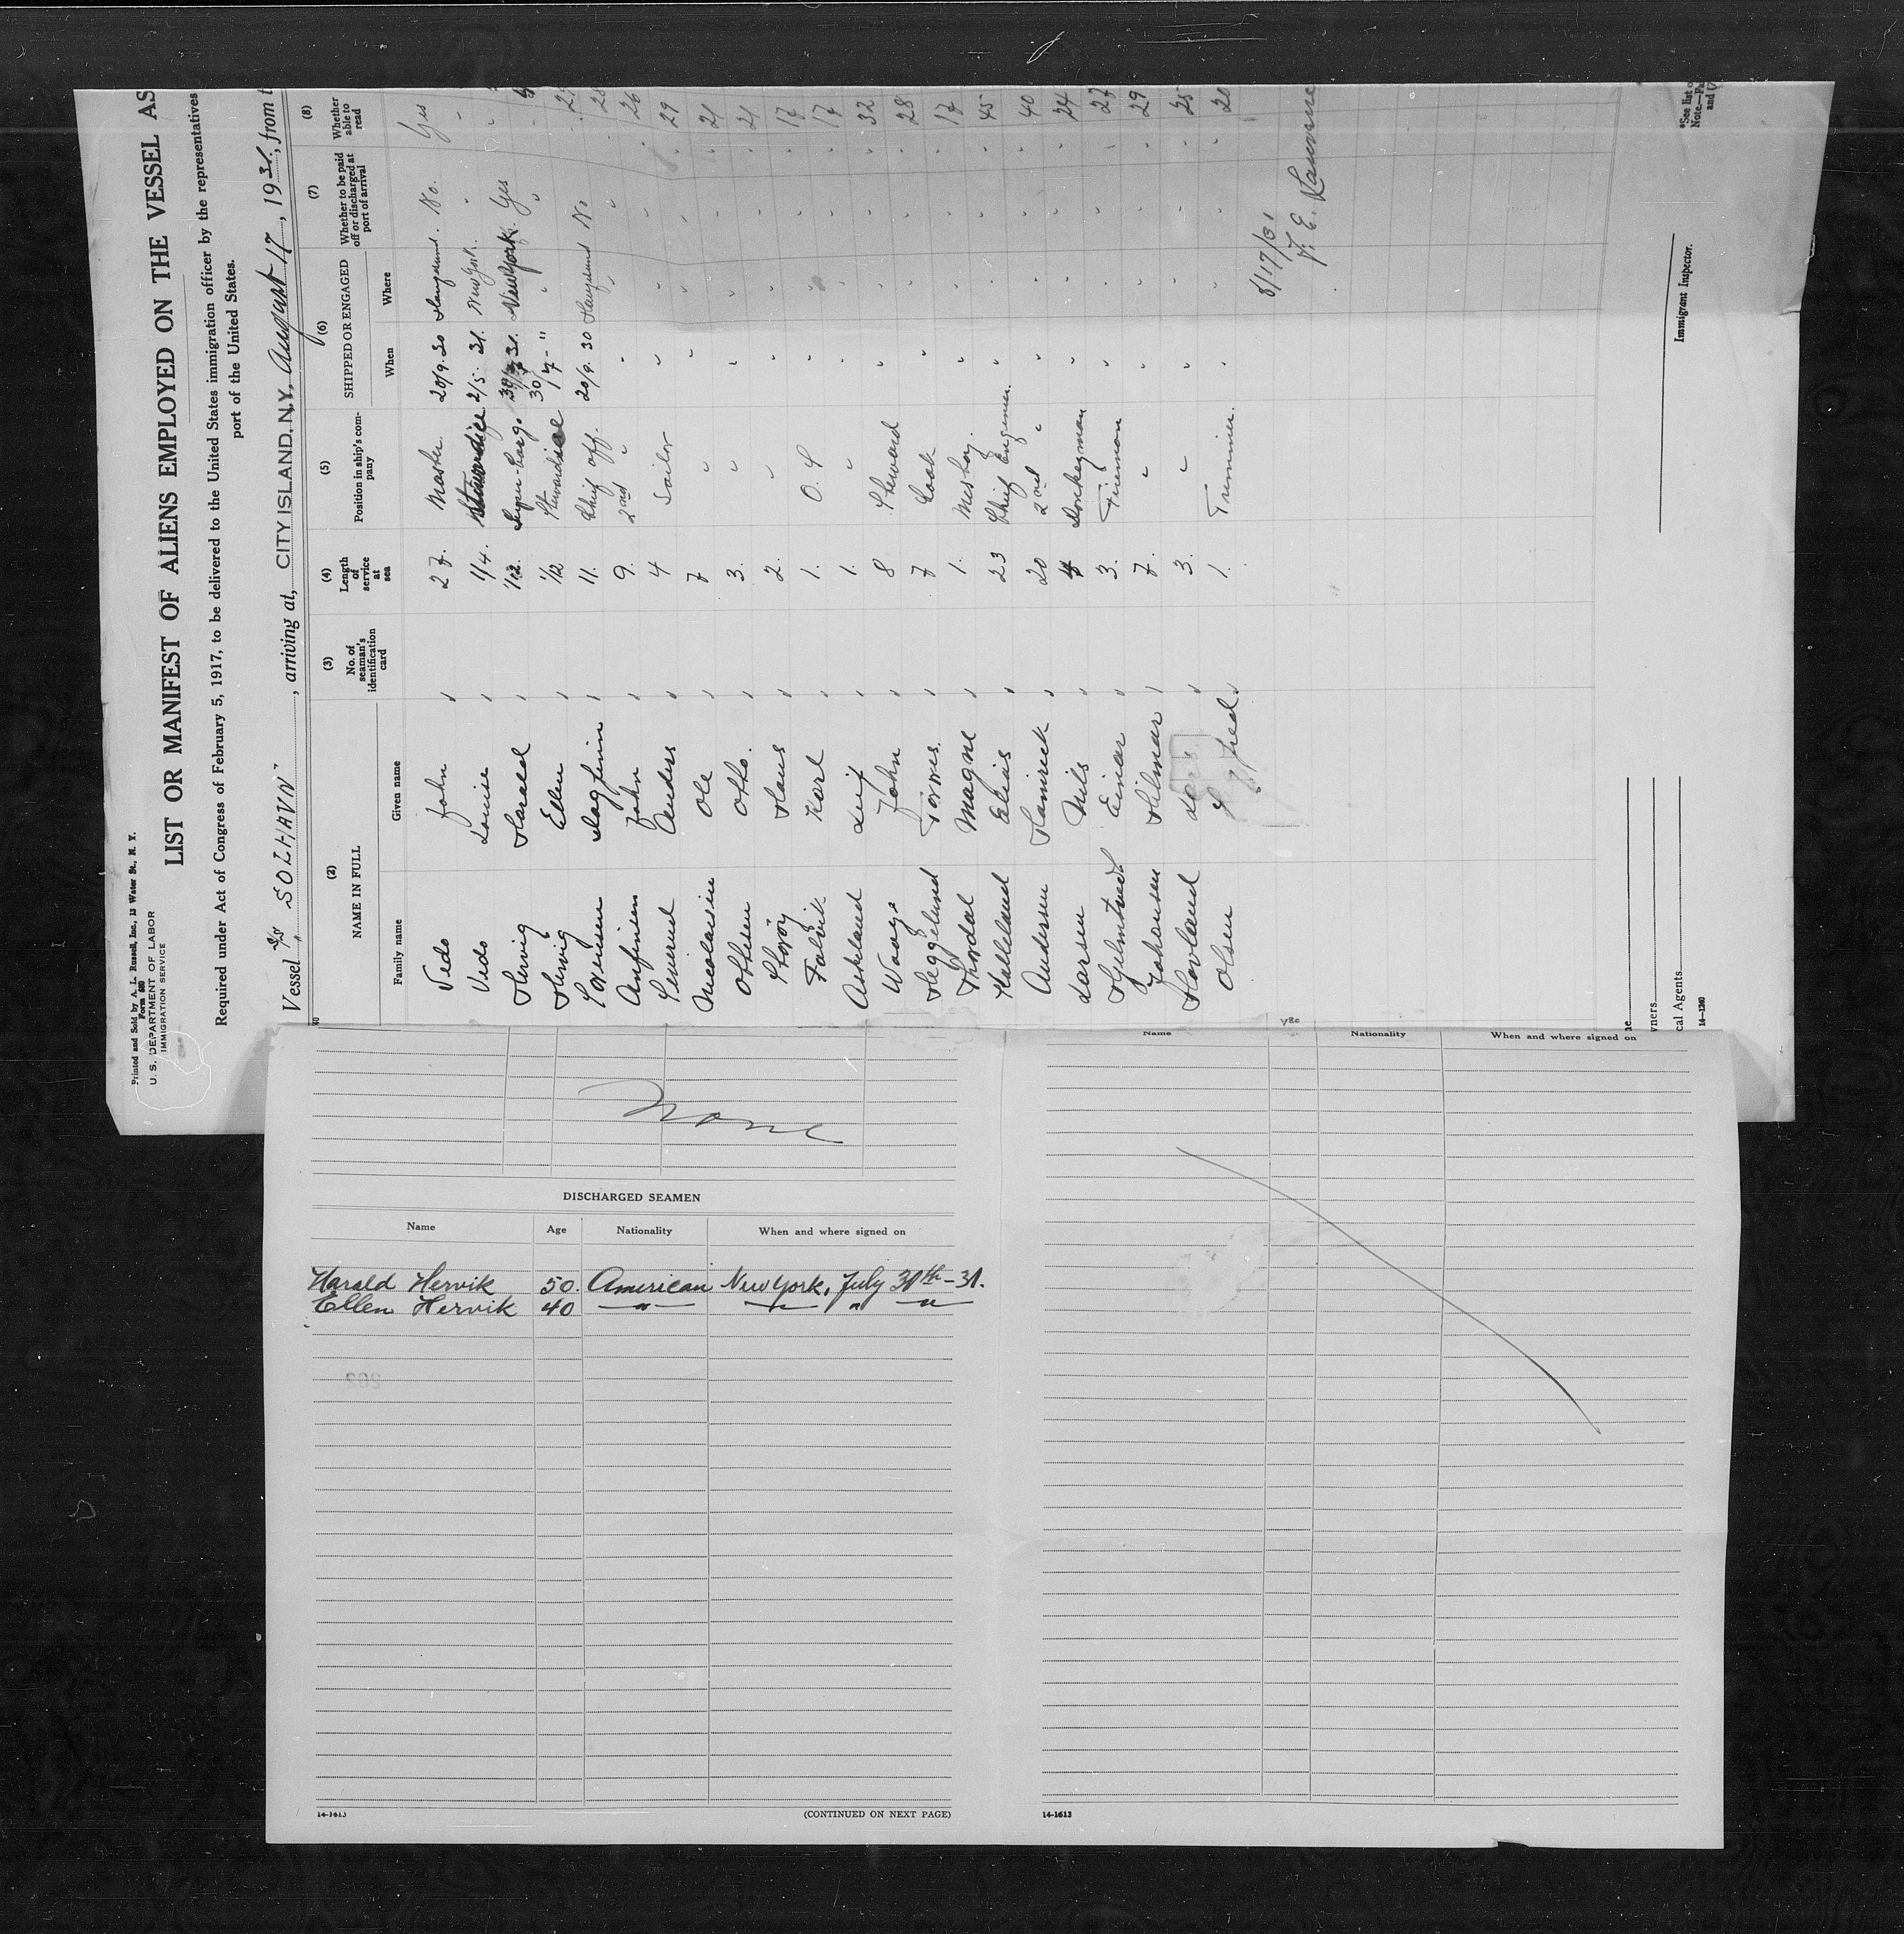 Printed and Sold by A. L. Russell, Inc., 13 Water St., N. Y.
Form 680
U. S. DEPARTMENT OF LABOR
IMMIGRATION SERVICE
LIST OR MANIFEST OF ALIENS EMPLOYED ON THE VESSEL AS
Required under Act of Congress of February 5, 1917, to be delivered to the United States immigration officer by the representatives
port of the United States.
Vessel S/S "SOLHAVN", arriving at, CITY ISLAND, N.Y., August 17, 1931, from t
(2) (3) (4) (5) (6) (7) (8)
NAME IN FULL No. of seaman's identification card Length of service at sea Position in ship's company SHIPPED OR ENGAGED Whether to be paid off or discharged at port of arrival Whether able to read
Family name Given name When Where
Vedo John 27. Master 20/9.30 Haugesund. No. Yes
Vedo Louise 1/4. 2/5. 31. New York. "
Hervig Harald 1/12. Super-Cargo 31. New York. Yes
Hervig Ellen 1/12 30/7 - " " "
Sorensen Dagfinn 11. Chief off. 20/9. 30 Haugesund No 28
Anfinsen John 9. 2nd " " " " 26
Severud Anders 4 Sailor " " " 29
Nicolaisen Ole 7 " " " " 21
Ottesen Otto. 3. " " " " 21
Storöy Hans 2. " " " " 17
Falvik Karl 1. O. S " " " 17
Askeland Leif 1. " " " " 32
Waage John 8 Steward " " " 28
Heggelund Torres. 7 Cook " " " 17
Thordal Magne 1. Messboy. " " " 45
Halleland Elias 23 Chief Engineer. " " " 40
Andersen Hamrick 20 2nd " " " " 24
Larsen Nils 4 Donkeyman " " " 27
Hjelmtveit Einar 3. Fireman " " " 29
Johansen Hilmar 7. " " " " 25
Hovland 3. " " " " 20
Olsen 1. Trimmer. " " "
8/17/31
Immigrant Inspector.
*See list o
Note.—Fa
and U
wners
cal Agents
14—1240
None
DISCHARGED SEAMEN
Name Age Nationality When and where signed on
Harald Hervik 50. American New York, July 30th - 31.
Ellen Hervik 40 " " " "
14-1613 (CONTINUED ON NEXT PAGE)
Name Age Nationality When and where signed on
14-1613